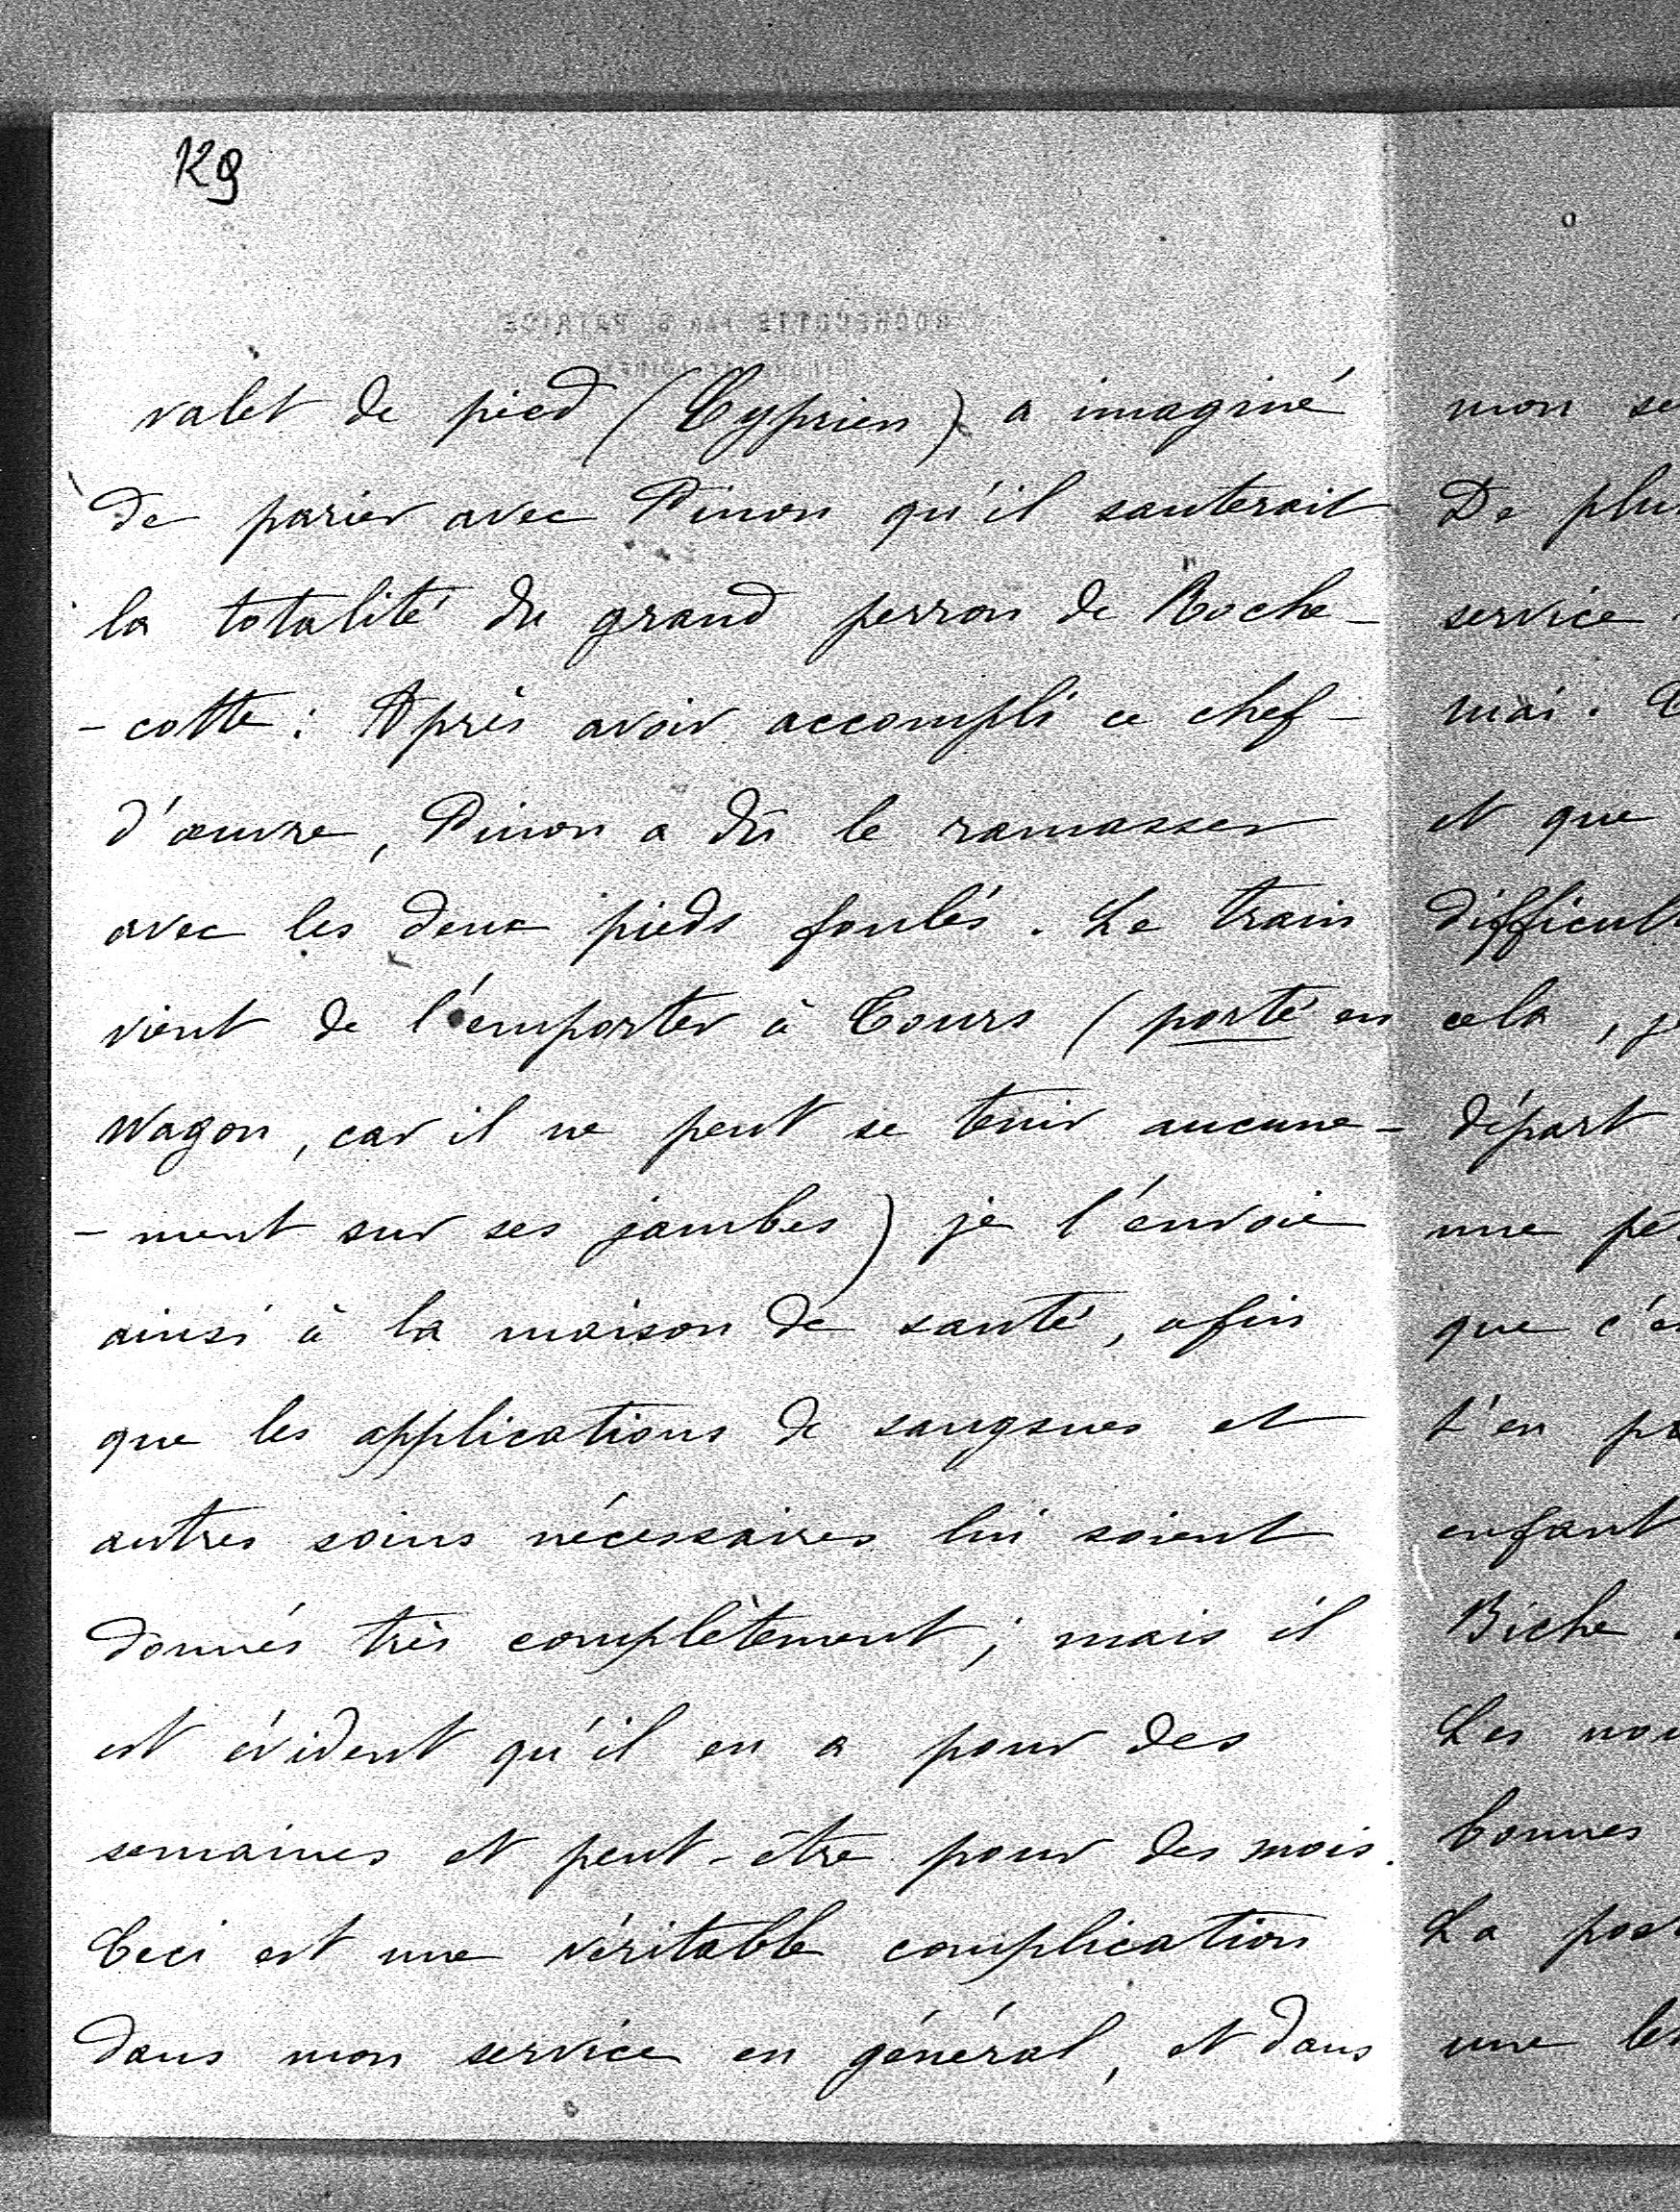 129
ROCHECOTTE PAR St PATRICE
valet de pied (Cyprien) a imaginé
de parier avec Pinon qu'il sauterait
la totalité du grand perron de Roche-
-cotte : Après avoir accompli ce chef-
d'œuvre, Pinon a dû le ramasser
avec les deux pieds foulés. Le train
vient de l'emporter à Tours (porté en
wagon, car il ne peut se tenir aucune-
-ment sur ses jambes) je l'envoie
ainsi à la maison de santé, afin
que les applications de sangsues et
autres soins nécessaires lui soient
donnés très complètement ; mais il
est évident qu'il en a pour des
semaines et peut-être pour des mois.
Ceci est une véritable complication
dans mon service en général, et dans
mon se
De plu
service
mai.
et que
difficult
cela, j
départ
une pe
que c'e
t'en pa
enfant
Biche
Les nou
bonnes
La post
une le